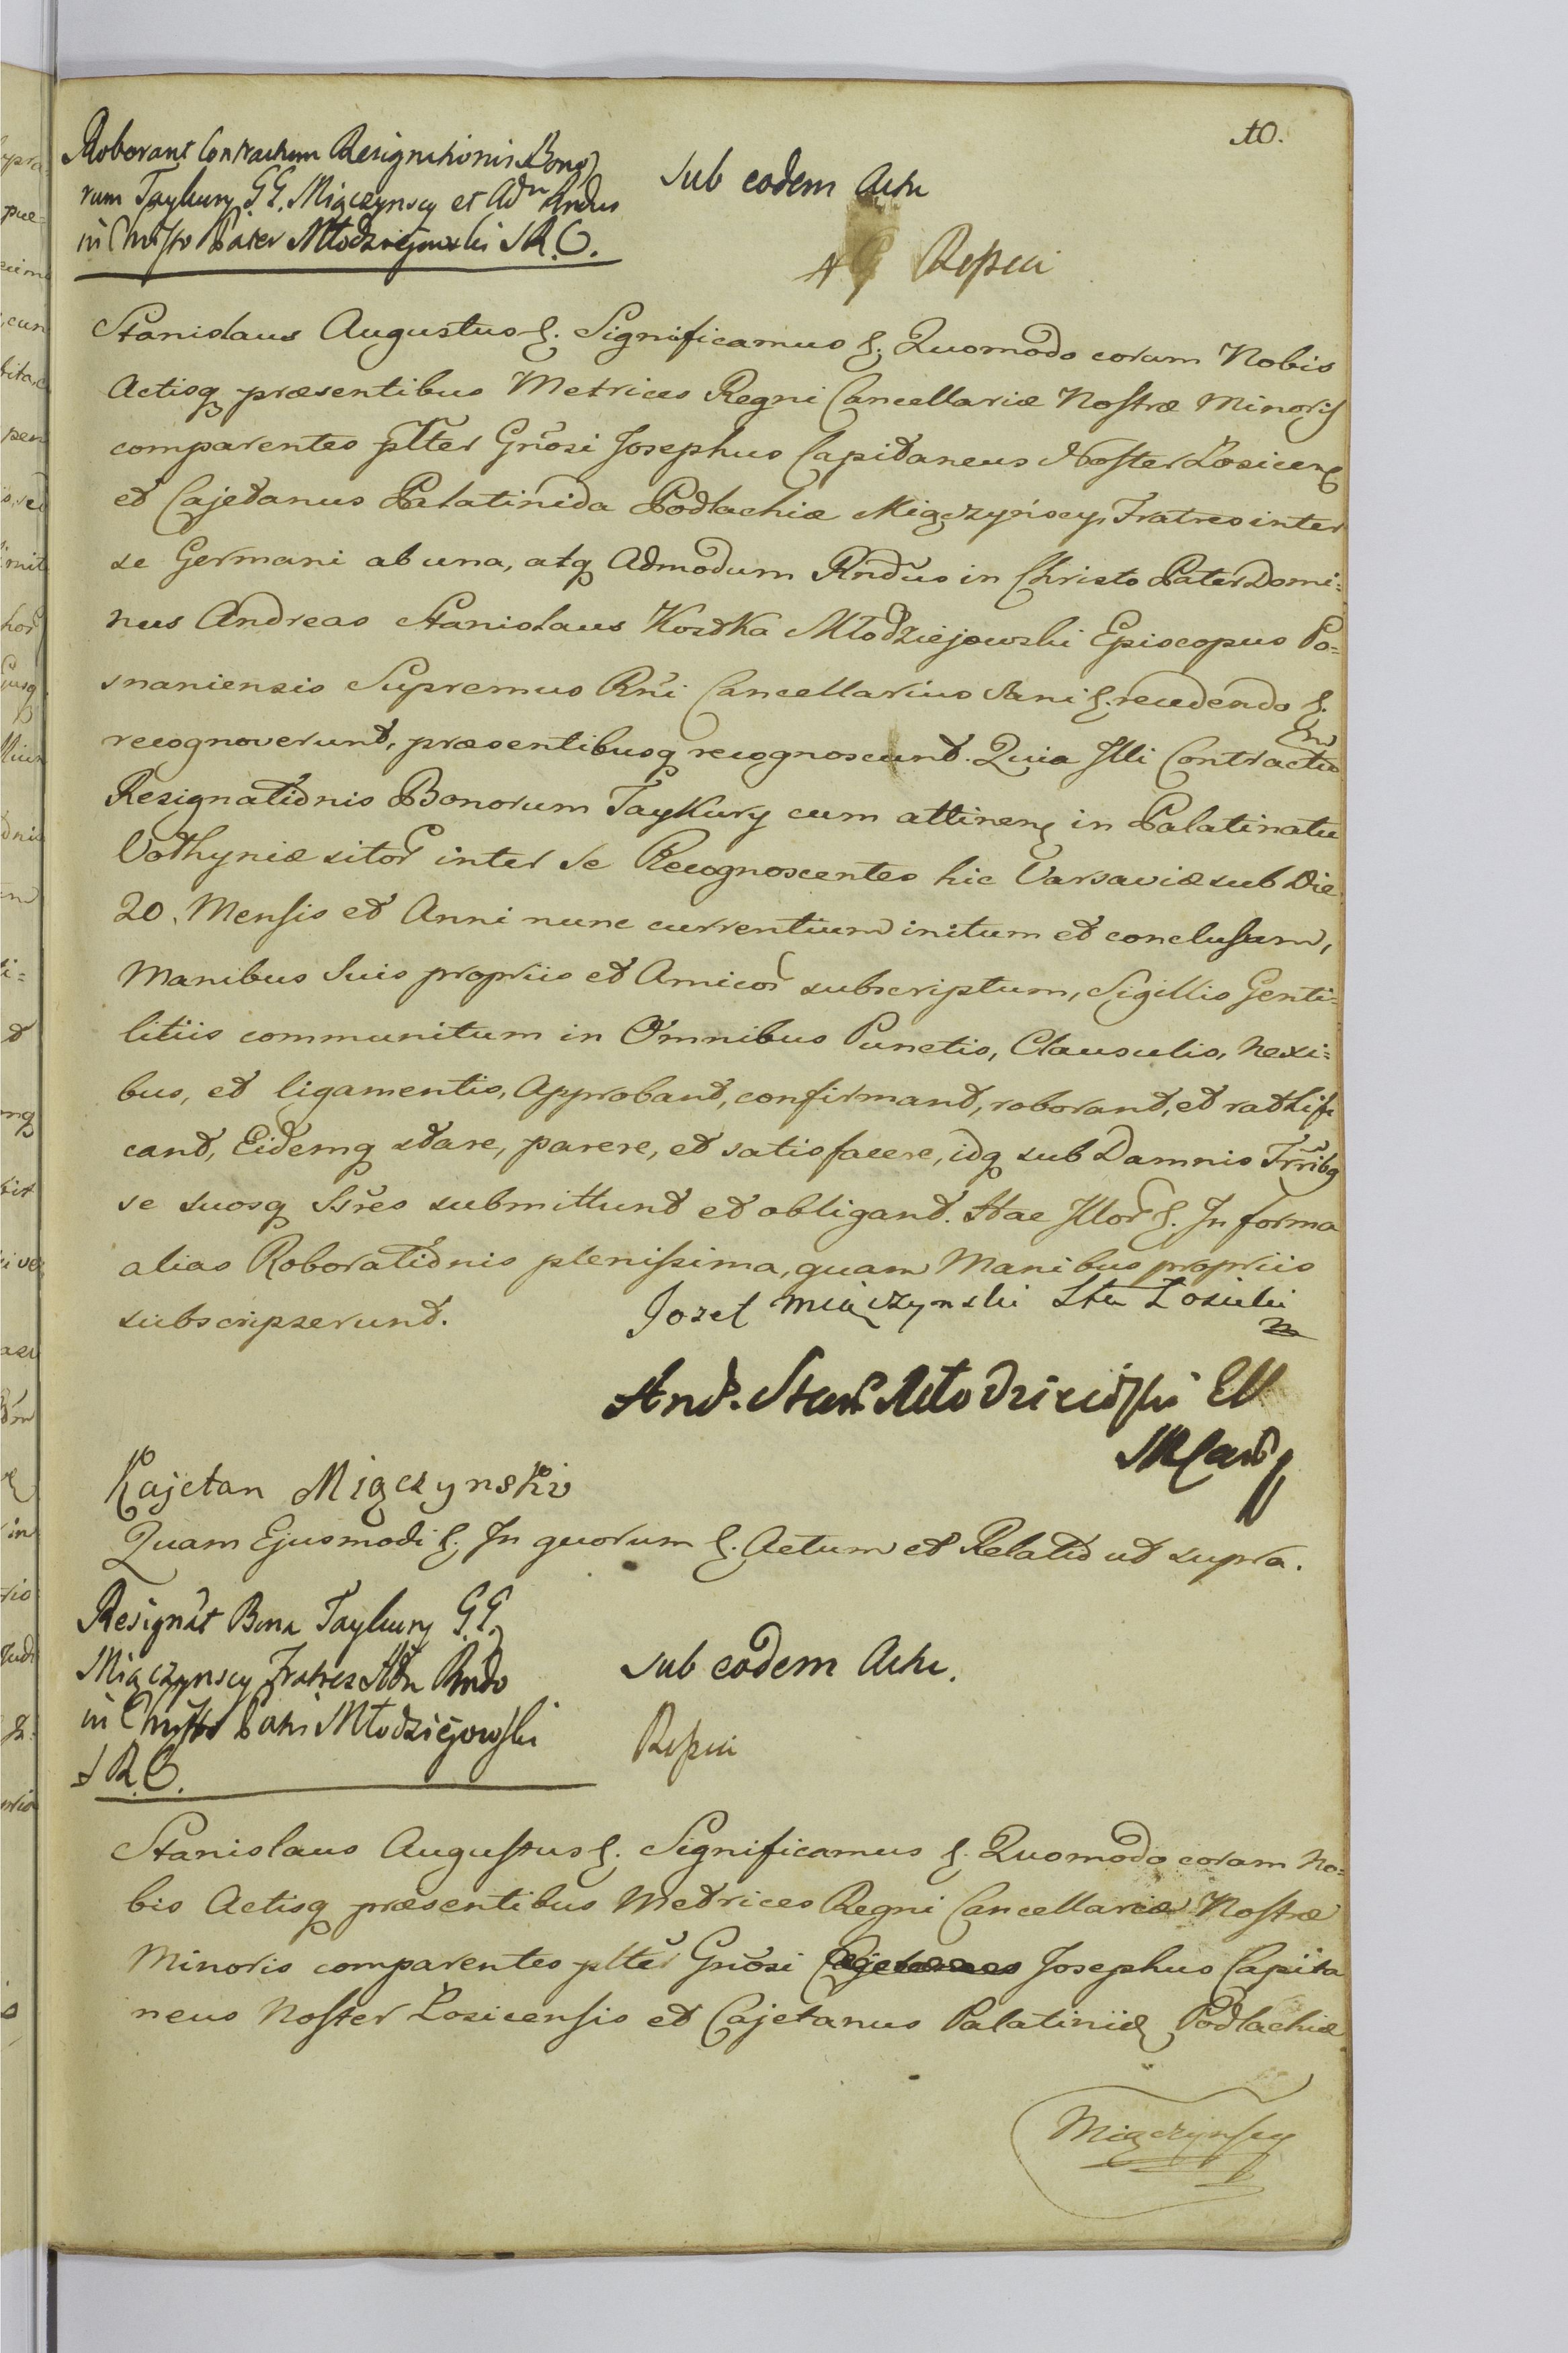 10.
Roborant Contractum Resignationis Bono
rum Taykury G.G. Miączynscy et Adm Rndus
in Christo Pater Młodziejowski S.R.C.
Sub eodem Actu
Stanislaus Augustus &. Significamus &. Quomodo coram Nobis
Actisq præsentibus Metrices Regni Cancellariæ Nostræ Minoris
comparentes plter Gnosi Josephus Capitaneus Noster Łosicen
et Cajetanus Palatinida Podlachiæ Miączyńscy, Fratres inter
se Germani ab una, atq Admodum Rndus in Christo Pater Domi=
nus Andreas Stanislaus Kostka Młodziejowski Episcopus Po=
snaniensis Supremus Rni Cancellarius Sani &. recedendo &.
recognoverunt, præsentibusq recognoscunt. Quia Illi Contractum
Resignationis Bonorum Taykury cum attinen in Palatinatu
Volhyniæ sitor inter se Recognoscentes hic Varsaviæ sub Die
20. Mensis et Anni nunc currentium initum et conclusum,
Manibus Suis propriis et Amicor subscriptum, Sigillis Genti=
litiis communitum in Omnibus Punctis, Clausulis, Nexi=
bus, et ligamentis, Approbant, confirmant, roborant, et rathifi
cant, Eidemq stare, parere, et satisfacere, idq sub Damnis Trribq
se suosq Ssres submittunt et obligant. Hac Illor &. In forma
alias Roborationis plenissima, quam Manibus propriis
subscripserunt.
Jozef Miączynski Sta Łosicki
m
And. Stan. Młodzieiowski EP
Kajetan Miączynski
Quam Ejusmodi &. In quorum &. Actum et Relatio ut supra.
Resignāt Bona Taykury G.G.
Miączynscy Fratres Adm Rndo
in Christo Patri Młodziejowski
S.R.C.
Sub eodem Actu.
Stanislaus Augustus &. Significamus &. Quomodo coram No=
bis Actisq præsentibus Metrices Regni Cancellariæ Nostræ
Minoris comparentes plter Gnosi Josephus Capita
neus Noster Łosicensis et Cajetanus Palatinid Podlachiæ
Miączynscy